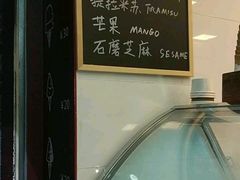 提拉米苏 TIRAMISU
芒果 MANGO
石磨芝麻 SESAME